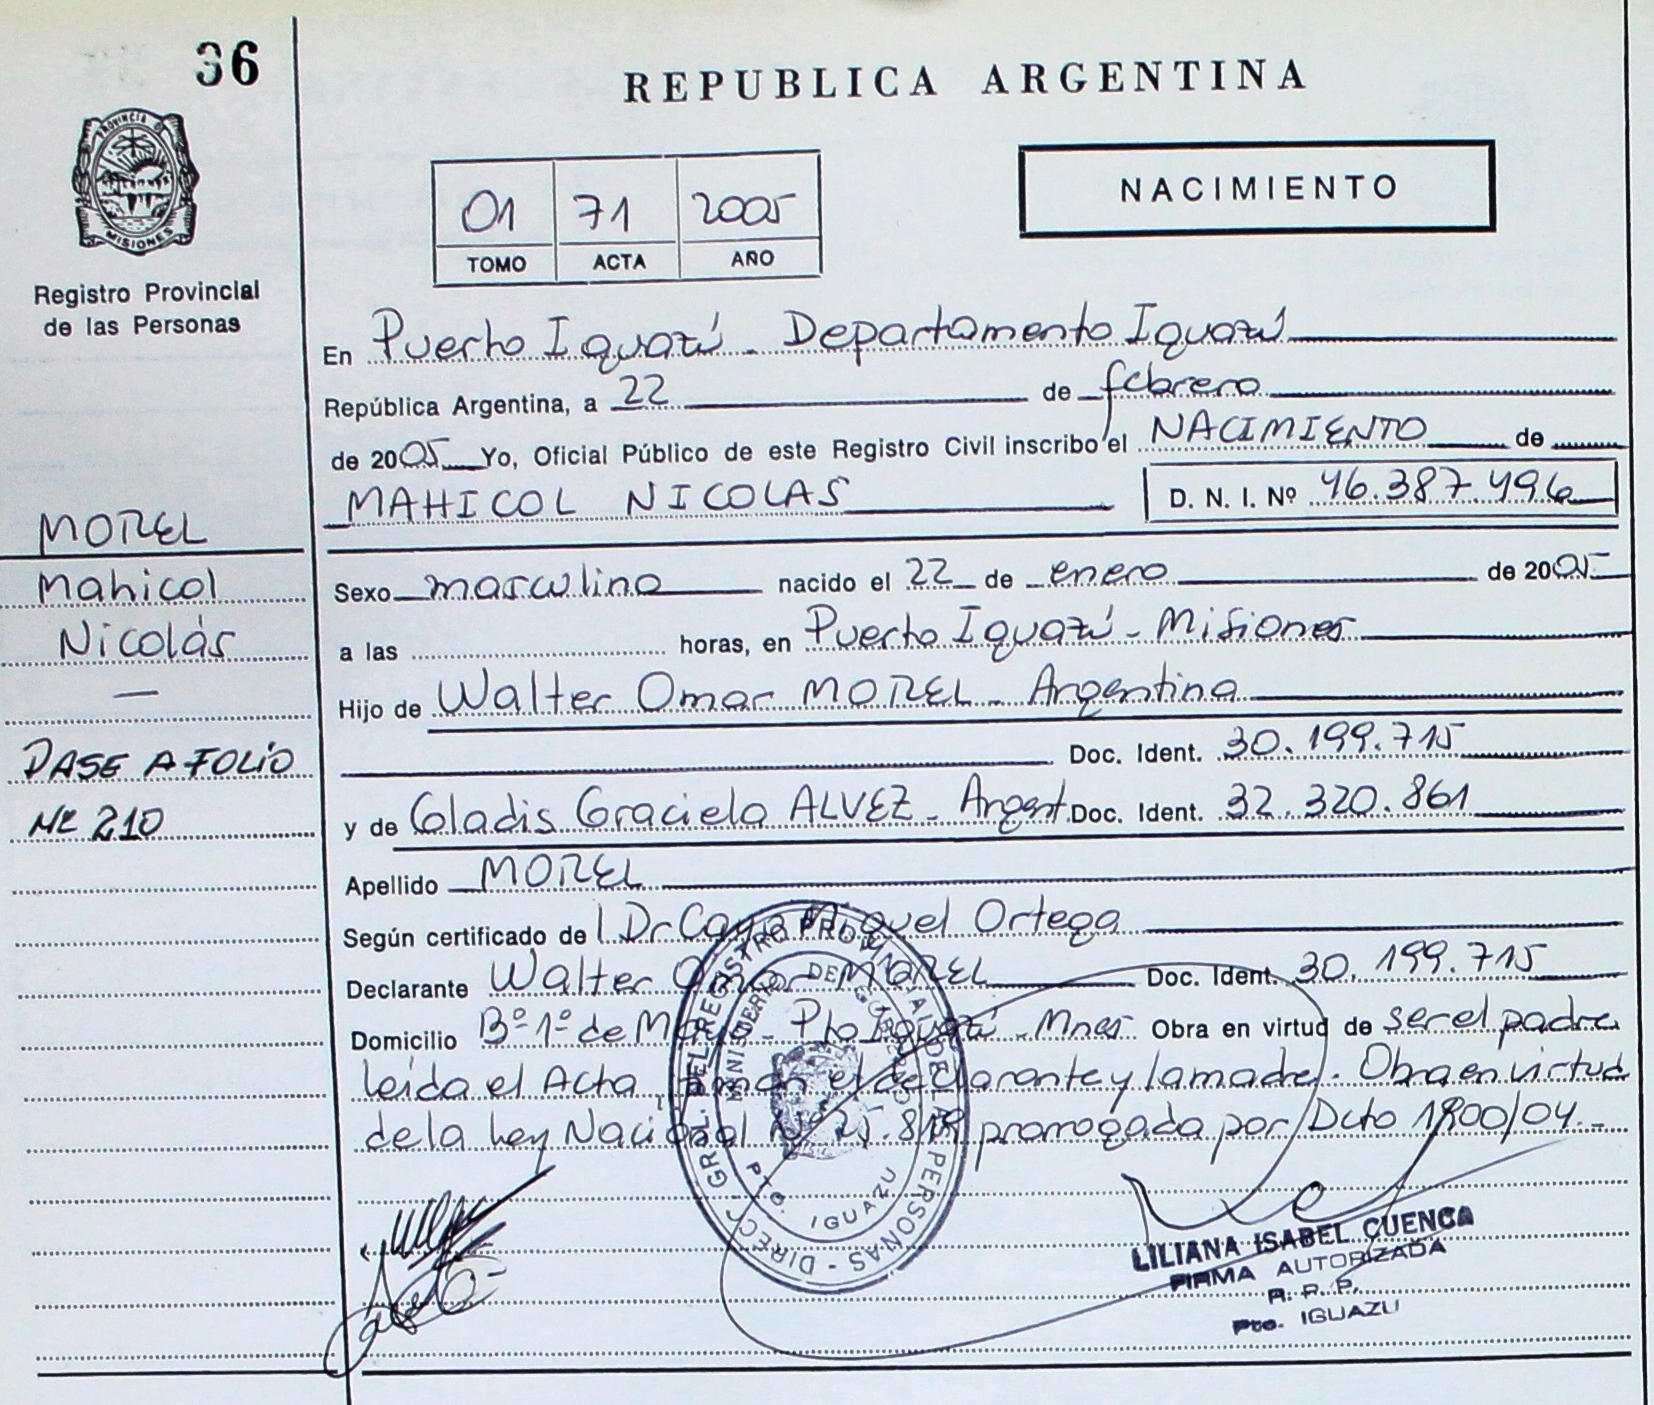 36
REPUBLICA ARGENTINA
PROVINCIA D
MISIONES
Registro Provincial
de las Personas
01 71 2005
TOMO ACTA AÑO
NACIMIENTO
En Puerto Iguazú - Departamento Iguazú
República Argentina, a 22 de febrero
de 2005 Yo, Oficial Público de este Registro Civil inscribo el NACIMIENTO de
MAHICOL NICOLAS D. N. I. Nº 46.387.496
MOREL
Mahicol
Nicolás
—
PASE A FOLIO
Nº 210
Sexo masculino nacido el 22 de enero de 2005
a las horas, en Puerto Iguazú - Misiones
Hijo de Walter Omar MOREL - Argentina
Doc. Ident. 30.199.715
y de Gladis Graciela ALVEZ - Argent. Doc. Ident. 32.320.861
Apellido MOREL
Según certificado de Dr Miguel Ortega
Declarante Walter Omar MOREL Doc. Ident. 30.199.715
Domicilio Bº 1º de Mayo - Pto Iguazú - Mnes Obra en virtud de ser el padre
leída el Acta firman el declarante y la madre. Obra en virtud
de la Ley Nacional Nº 25.819 prorrogada por Dcto 1900/04.-
DIRECC. GRAL. DEL REGISTRO PROVINCIAL DE LAS PERSONAS
MINISTERIO DE GOBIERNO
PTO. IGUAZU
LILIANA ISABEL CUENCA
FIRMA AUTORIZADA
R. P. P.
Pto. IGUAZU